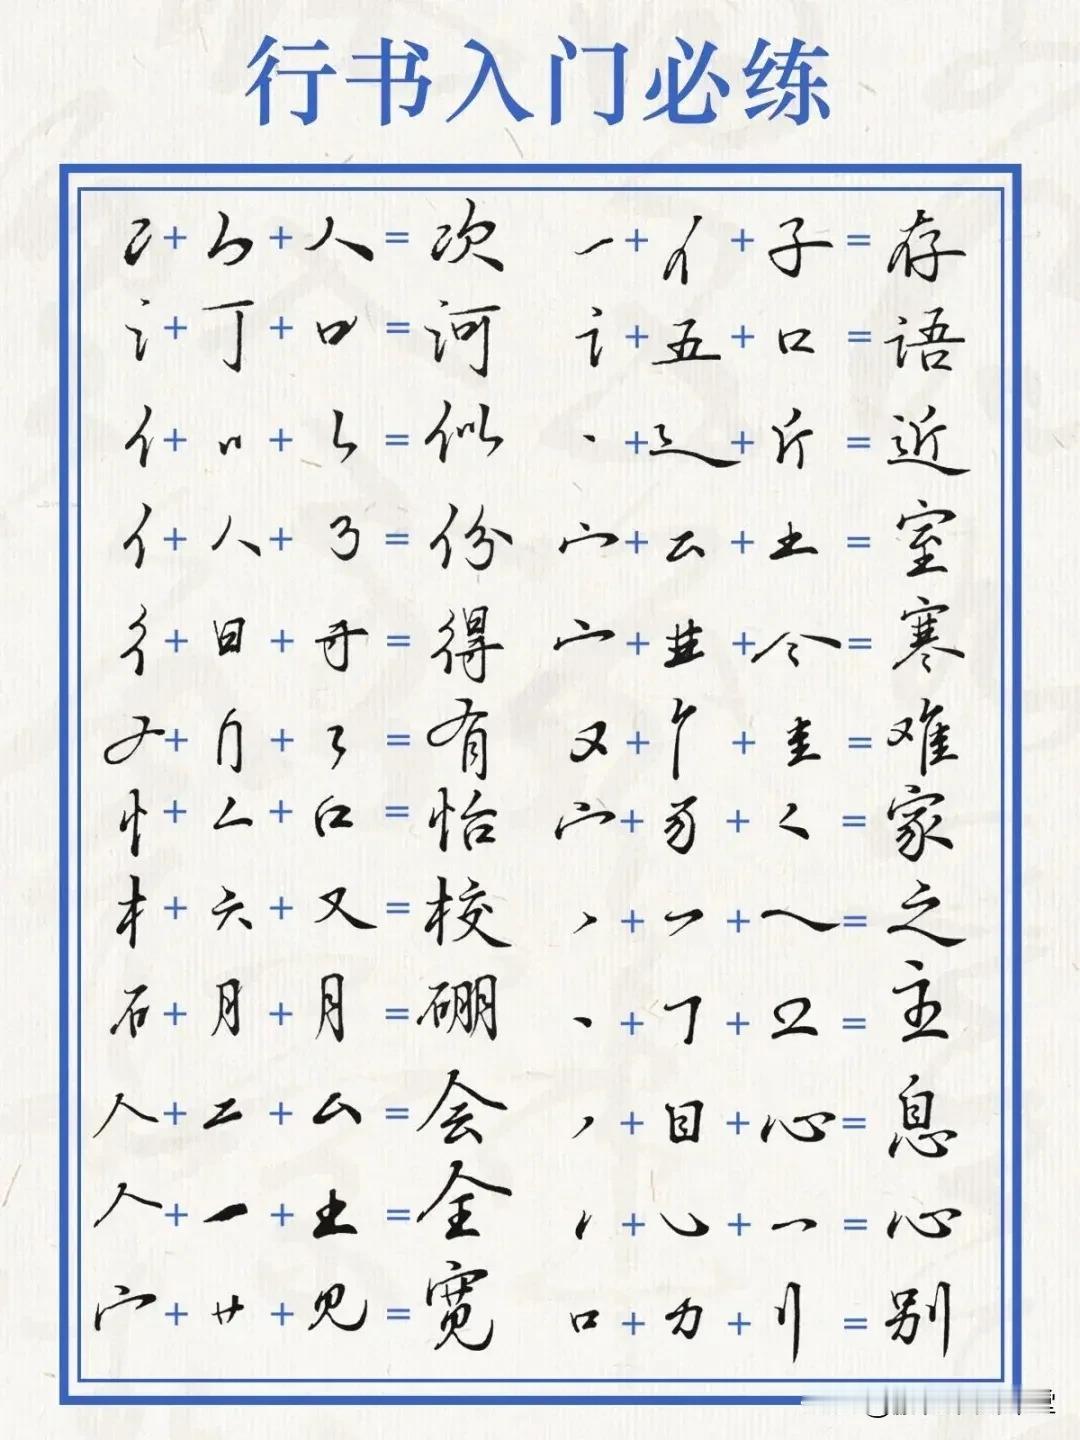 行书入门必练
冫+𠂊+人=次 一+亻+子=存
讠+丁+口=河 讠+五+口=语
亻+〃+𠄌=似 丶+辶+斤=近
亻+人+㇋=份 宀+云+土=室
彳+日+=得 宀+龷+令=寒
++=有 又++=难
忄+厶+口=怡 宀++=家
木+六+又=校 丶++乀=之
石+月+月=硼 丶++=主
人+二+厶=会 丿+目+心=息
人+一+土=全 丶+乚+一=心
宀+艹+见=宽 口+力+刂=别